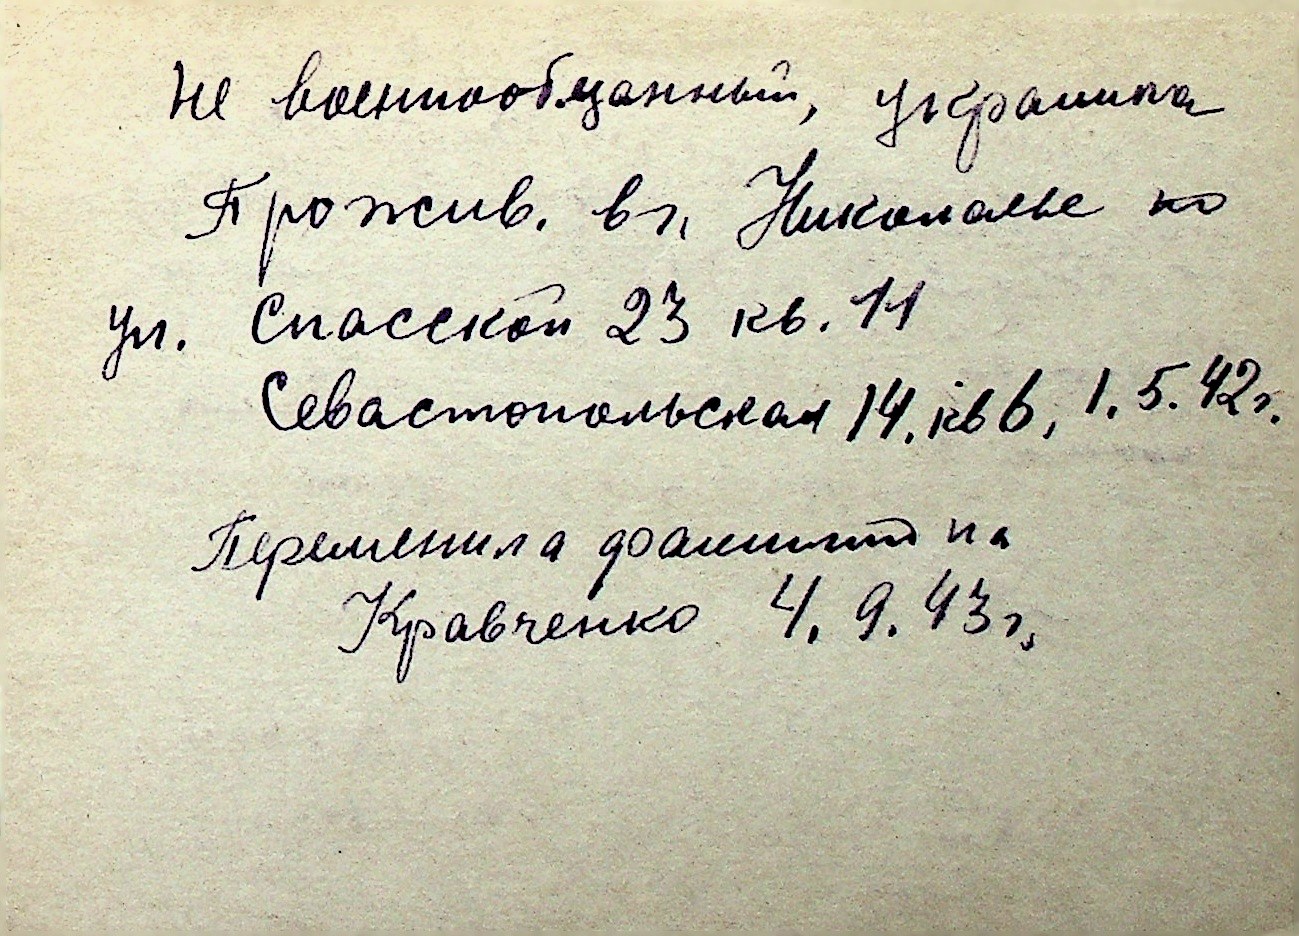 Не военнообязанный, украинка
Прожив. в г. Николаеве по
ул. Спасской 23 кв. 11
Севастопольская 14. кв 6, 1.5.42г.
Переменила фамилию на
Кравченко 4. 9. 43г.